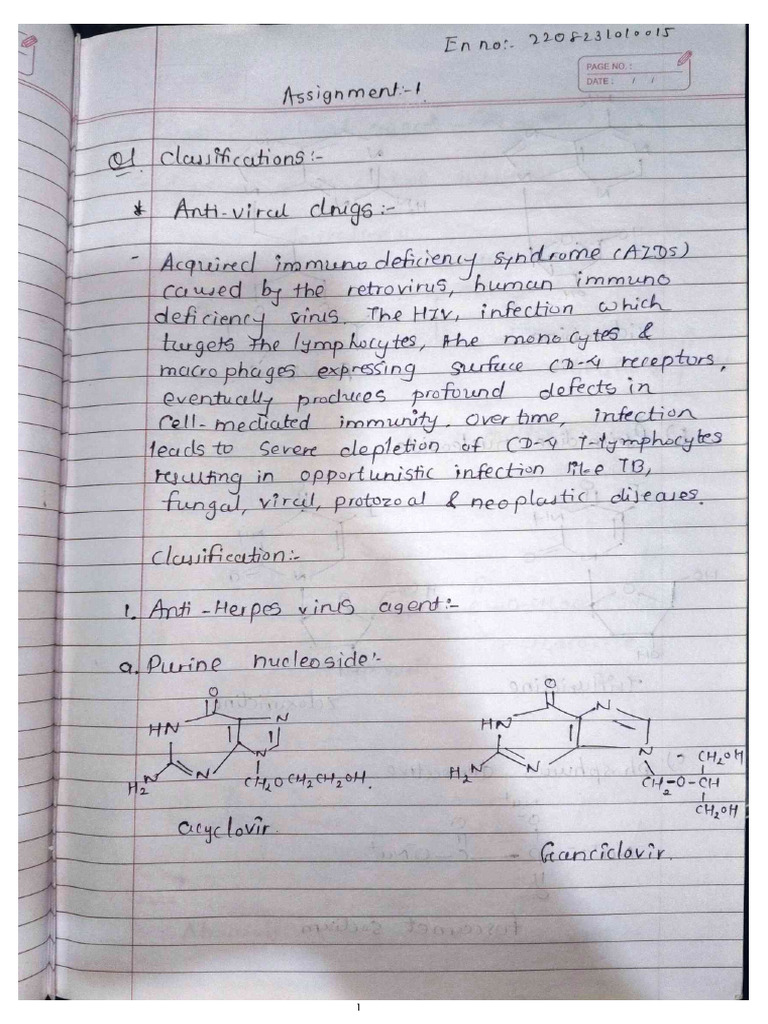 En no:- 2208231010015
PAGE NO. :
DATE : / /
Assignment:-1
Q1. Classifications:-
* Anti-viral drugs:-
- Acquired immuno deficiency syndrome (AIDs)
caused by the retrovirus, human immuno
deficiency virus. The HIV, infection which
turgets the lymphocytes, the monocytes &
macrophages expressing surface CD-4 receptors,
eventually produces profound defects in
cell-mediated immunity. Over time, infection
leads to severe depletion of CD-4 T-lymphocytes
resulting in opportunistic infection like TB,
fungal, viral, protozoal & neoplastic diseases.
Classification:-
1. Anti-Herpes virus agent:-
a. Purine nucleoside:-
O
HN
N
H2N
N
N
CH2OCH2CH2OH.
acyclovir.
O
HN
N
H2N
N
N
CH2OH
CH2-O-CH
CH2OH
Ganciclovir.
1